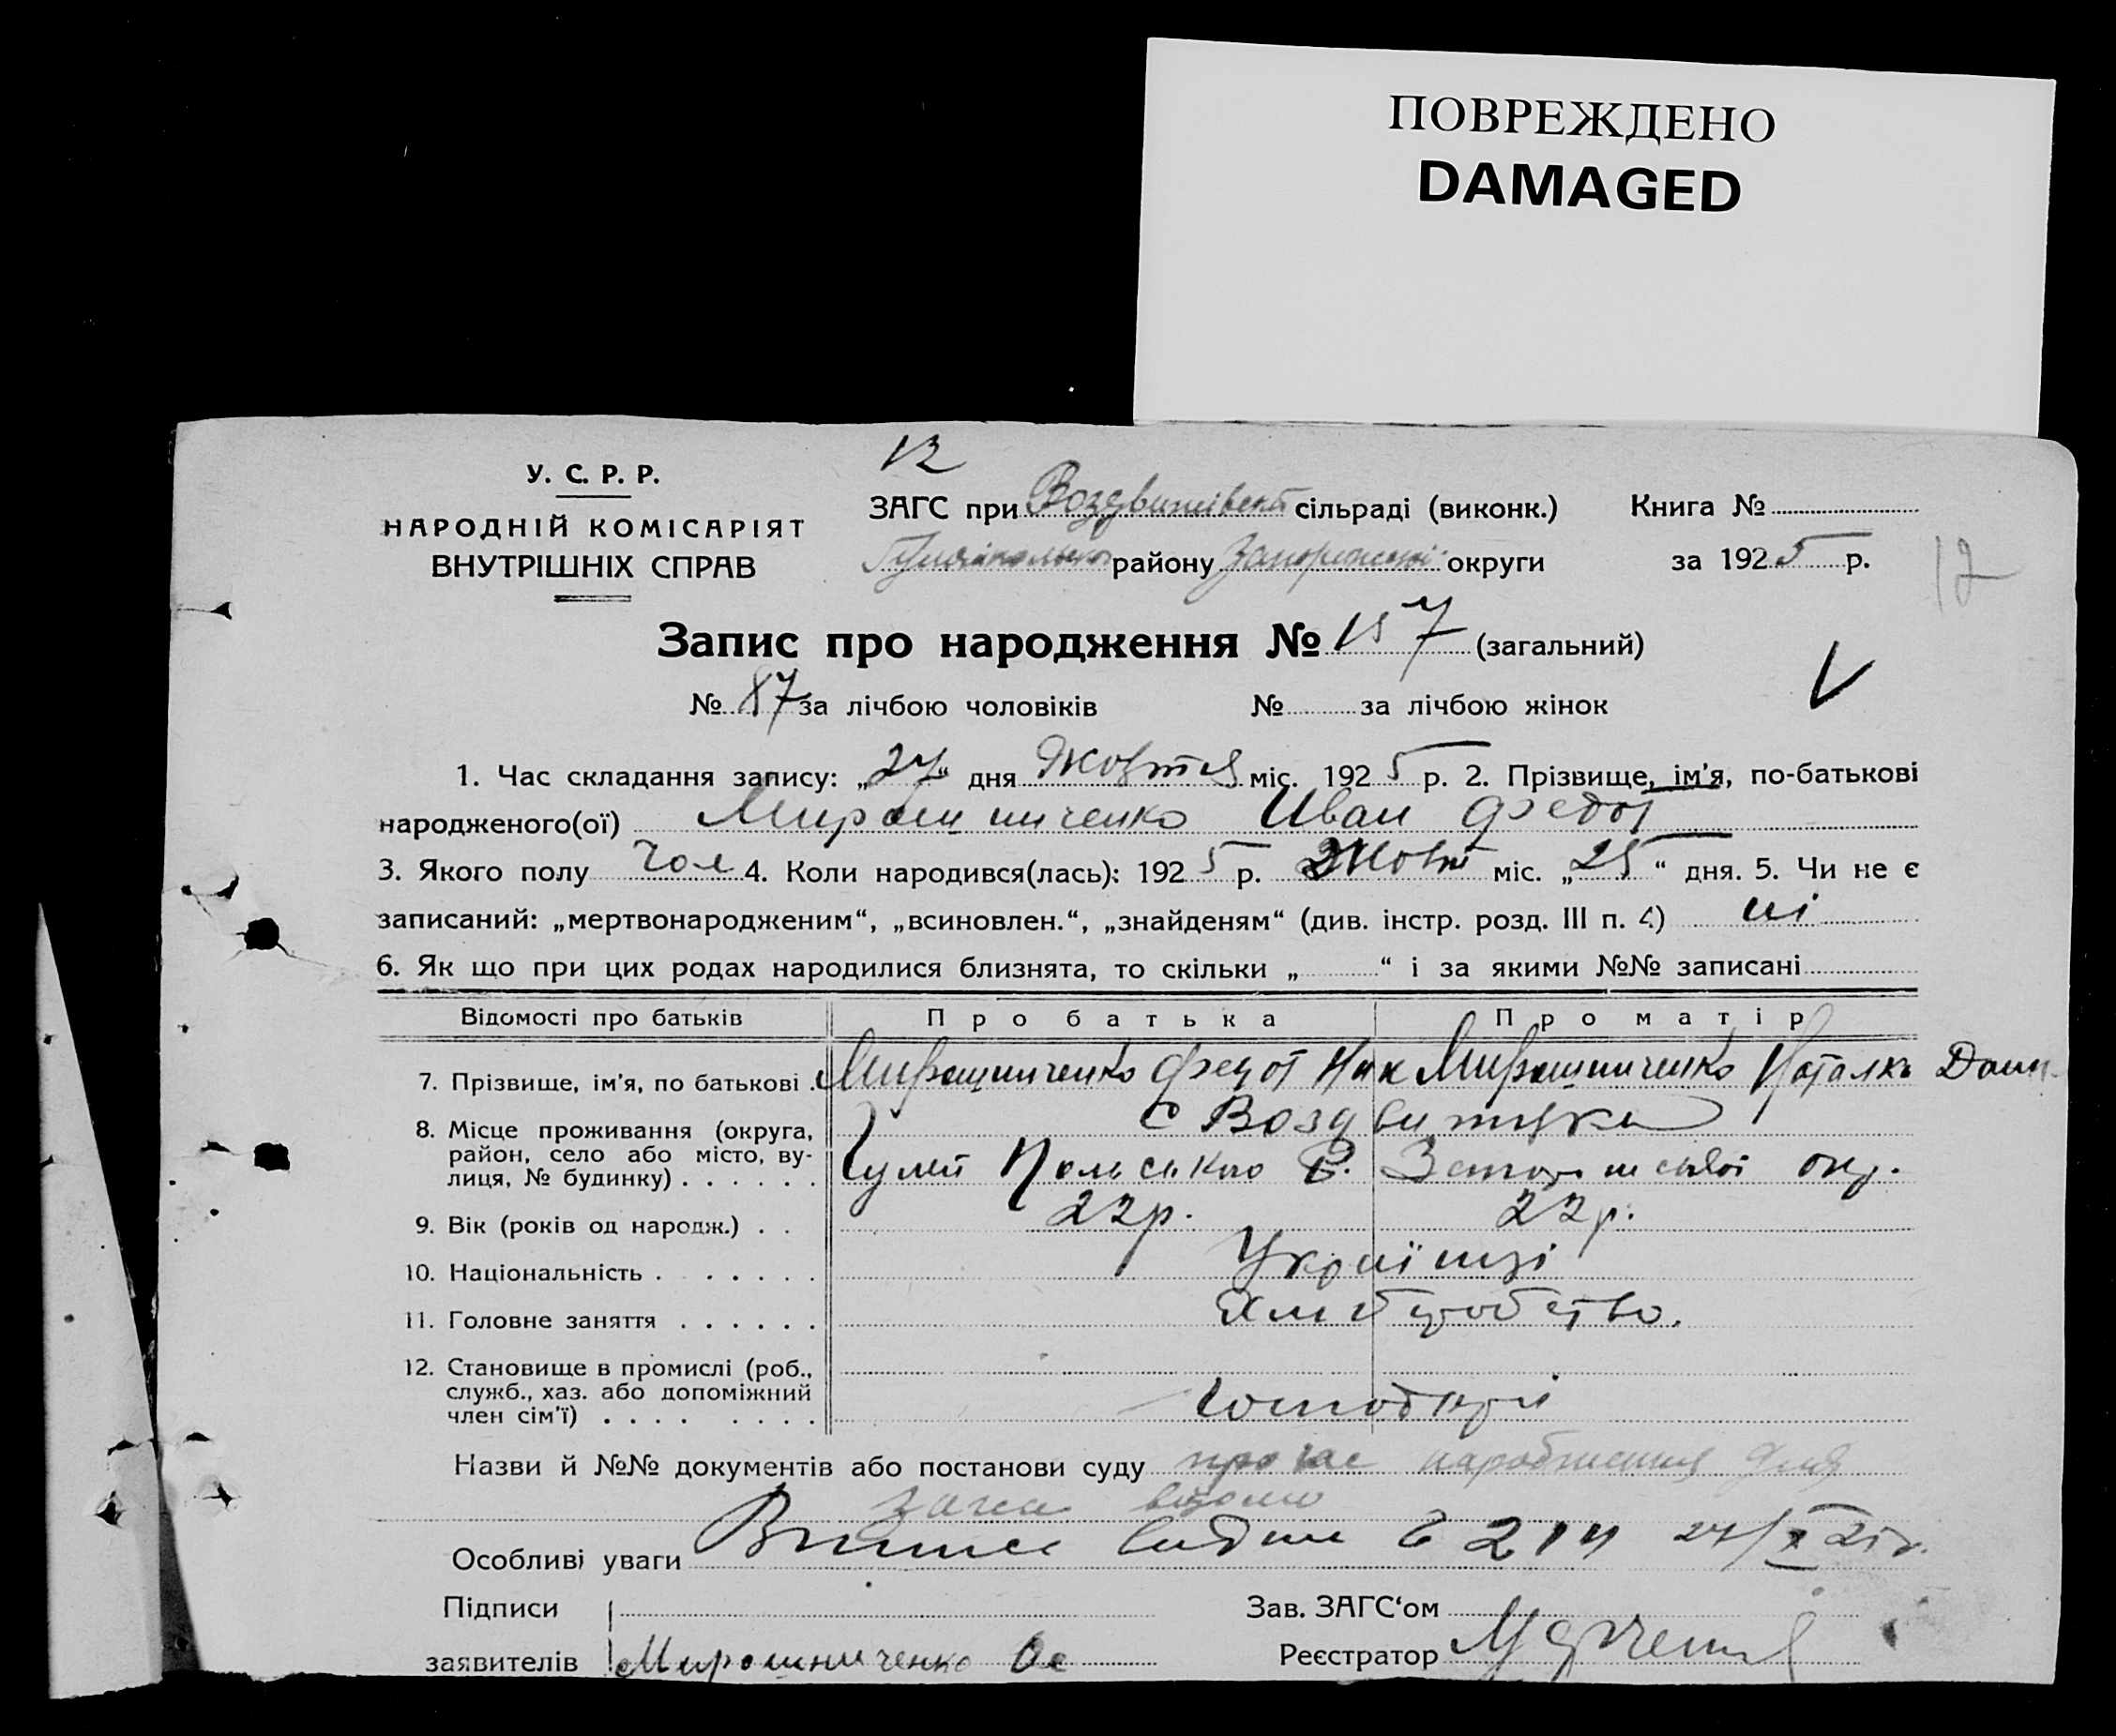 ПОВРЕЖДЕНО
DAMAGED
12
У. С. Р. Р.
НАРОДНІЙ КОМІСАРІЯТ
ВНУТРІШНІХ СПРАВ
ЗАГС при Воздвижівськ сільраді (виконк.) Книга №
району Запоріжської округи за 1925 р.
12
Запис про народження № 157 (загальний)
№ 87 за лічбою чоловіків № за лічбою жінок
V
1. Час складання запису: „27“ дня Жовтня міс. 1925 р. 2. Прізвище, ім'я, по-батькові
народженого(ої) Мирошниченко Иван Федот
3. Якого полу чол 4. Коли народився(лась): 1925 р. Жовт міс. „25“ дня. 5. Чи не є
записаний: „мертвонародженим“, „всиновлен.“, „знайденям“ (див. інстр. розд. III п. 4) ні
6. Як що при цих родах народилися близнята, то скільки „ “ і за якими №№ записані
Відомості про батьків Про батька Про матір
7. Прізвище, ім'я, по батькові Мирошниченко Федот Ник Мирошниченко Наталка Дани
8. Місце проживання (округа, район, село або місто, вулиця, № будинку) с Воздвижівка
Гуляй Польського Р. Запоріжської окр.
9. Вік (років од народж.) 22р. 22р.
10. Національність Українці
11. Головне заняття Хліборобство.
12. Становище в промислі (роб., служб., хаз. або допоміжний член сім'ї) Господарі
Назви й №№ документів або постанови суду про час народження для
загса відомо
Особливі уваги 27/X 25 р.
Підписи Зав. ЗАГС'ом
заявителів Мирошниченко Реєстратор